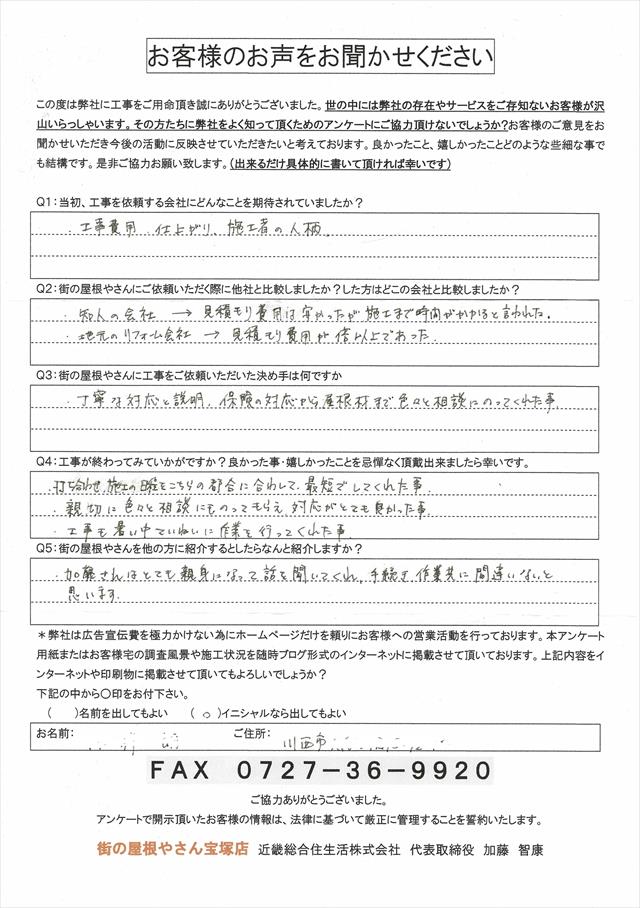 お客様のお声をお聞かせください
この度は弊社に工事をご用命頂き誠にありがとうございました。世の中には弊社の存在やサービスをご存知ないお客様が沢
山いらっしゃいます。その方たちに弊社をよく知って頂くためのアンケートにご協力頂けないでしょうか?お客様のご意見をお
聞かせいただき今後の活動に反映させていただきたいと考えております。良かったこと、嬉しかったことどのような些細な事で
も結構です。是非ご協力お願い致します。(出来るだけ具体的に書いて頂ければ幸いです)
Q1:当初、工事を依頼する会社にどんなことを期待されていましたか?
・工事費用、仕上がり、施工者の人柄。
Q2:街の屋根やさんにご依頼いただく際に他社と比較しましたか?した方はどこの会社と比較しましたか?
・知人の会社 → 見積もり費用は安かったが施工まで時間がかかると言われた。
・地元のリフォーム会社 → 見積もり費用が倍以上であった
Q3:街の屋根やさんに工事をご依頼いただいた決め手は何ですか
・丁寧な対応と説明、保険の対応から屋根材まで色々と相談にのってくれた事
Q4:工事が終わってみていかがですか?良かった事・嬉しかったことを忌憚なく頂戴出来ましたら幸いです。
打ち合わせ、施工の日程をこちらの都合に合わして、最短でしてくれた事
・親切に色々と相談にものってもらえ対応がとても良かった事
・工事も暑い中ていねいに作業を行ってくれた事
Q5:街の屋根やさんを他の方に紹介するとしたらなんと紹介しますか?
・加藤さんはとても親身になって話を聞いてくれ、手続き、作業共に間違いないと
思います。
*弊社は広告宣伝費を極力かけない為にホームページだけを頼りにお客様への営業活動を行っております。本アンケート
用紙またはお客様宅の調査風景や施工状況を随時ブログ形式のインターネットに掲載させて頂いております。上記内容をイ
ンターネットや印刷物に掲載させて頂いてもよろしいでしょうか?
下記の中から〇印をお付下さい。
( )名前を出してもよい (○)イニシャルなら出してもよい
お名前: ご住所: 川西市
FAX 0727-36-9920
ご協力ありがとうございました。
アンケートで開示頂いたお客様の情報は、法律に基づいて厳正に管理することを誓約いたします。
街の屋根やさん宝塚店 近畿総合住生活株式会社 代表取締役 加藤 智康